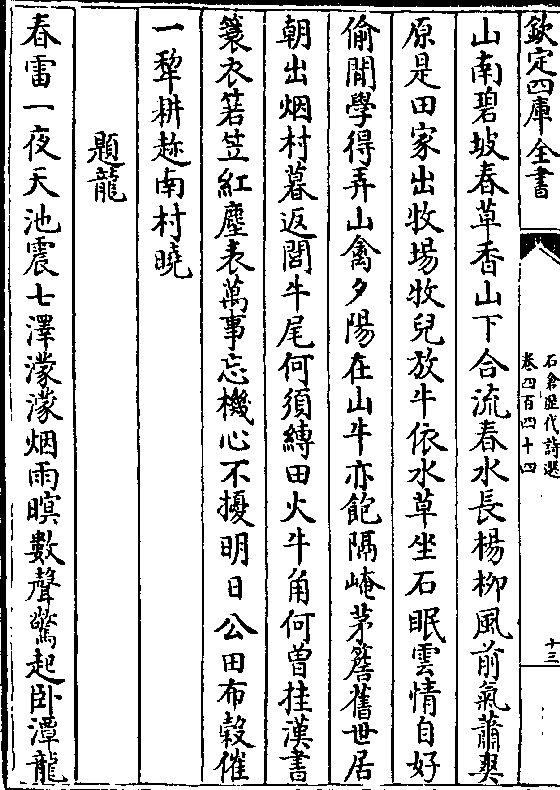 欽定四庫全書
石倉歷代詩選
卷四百四十四
十三
山南碧坡春草香山下合流春水長楊柳風前氣蕭爽
原是田家出牧場牧兒放牛依水草坐石眠雲情自好
偷閒學得弄山禽夕陽在山牛亦飽隔崦茅簷舊世居
朝出烟村暮返閭牛尾何須縛田火牛角何曾挂漢書
簑衣箬笠紅塵表萬事忘機心不擾明日公田布穀催
一犂耕趂南村曉
題龍
春雷一夜天池震七澤濛濛烟雨暝數聲驚起卧潭龍